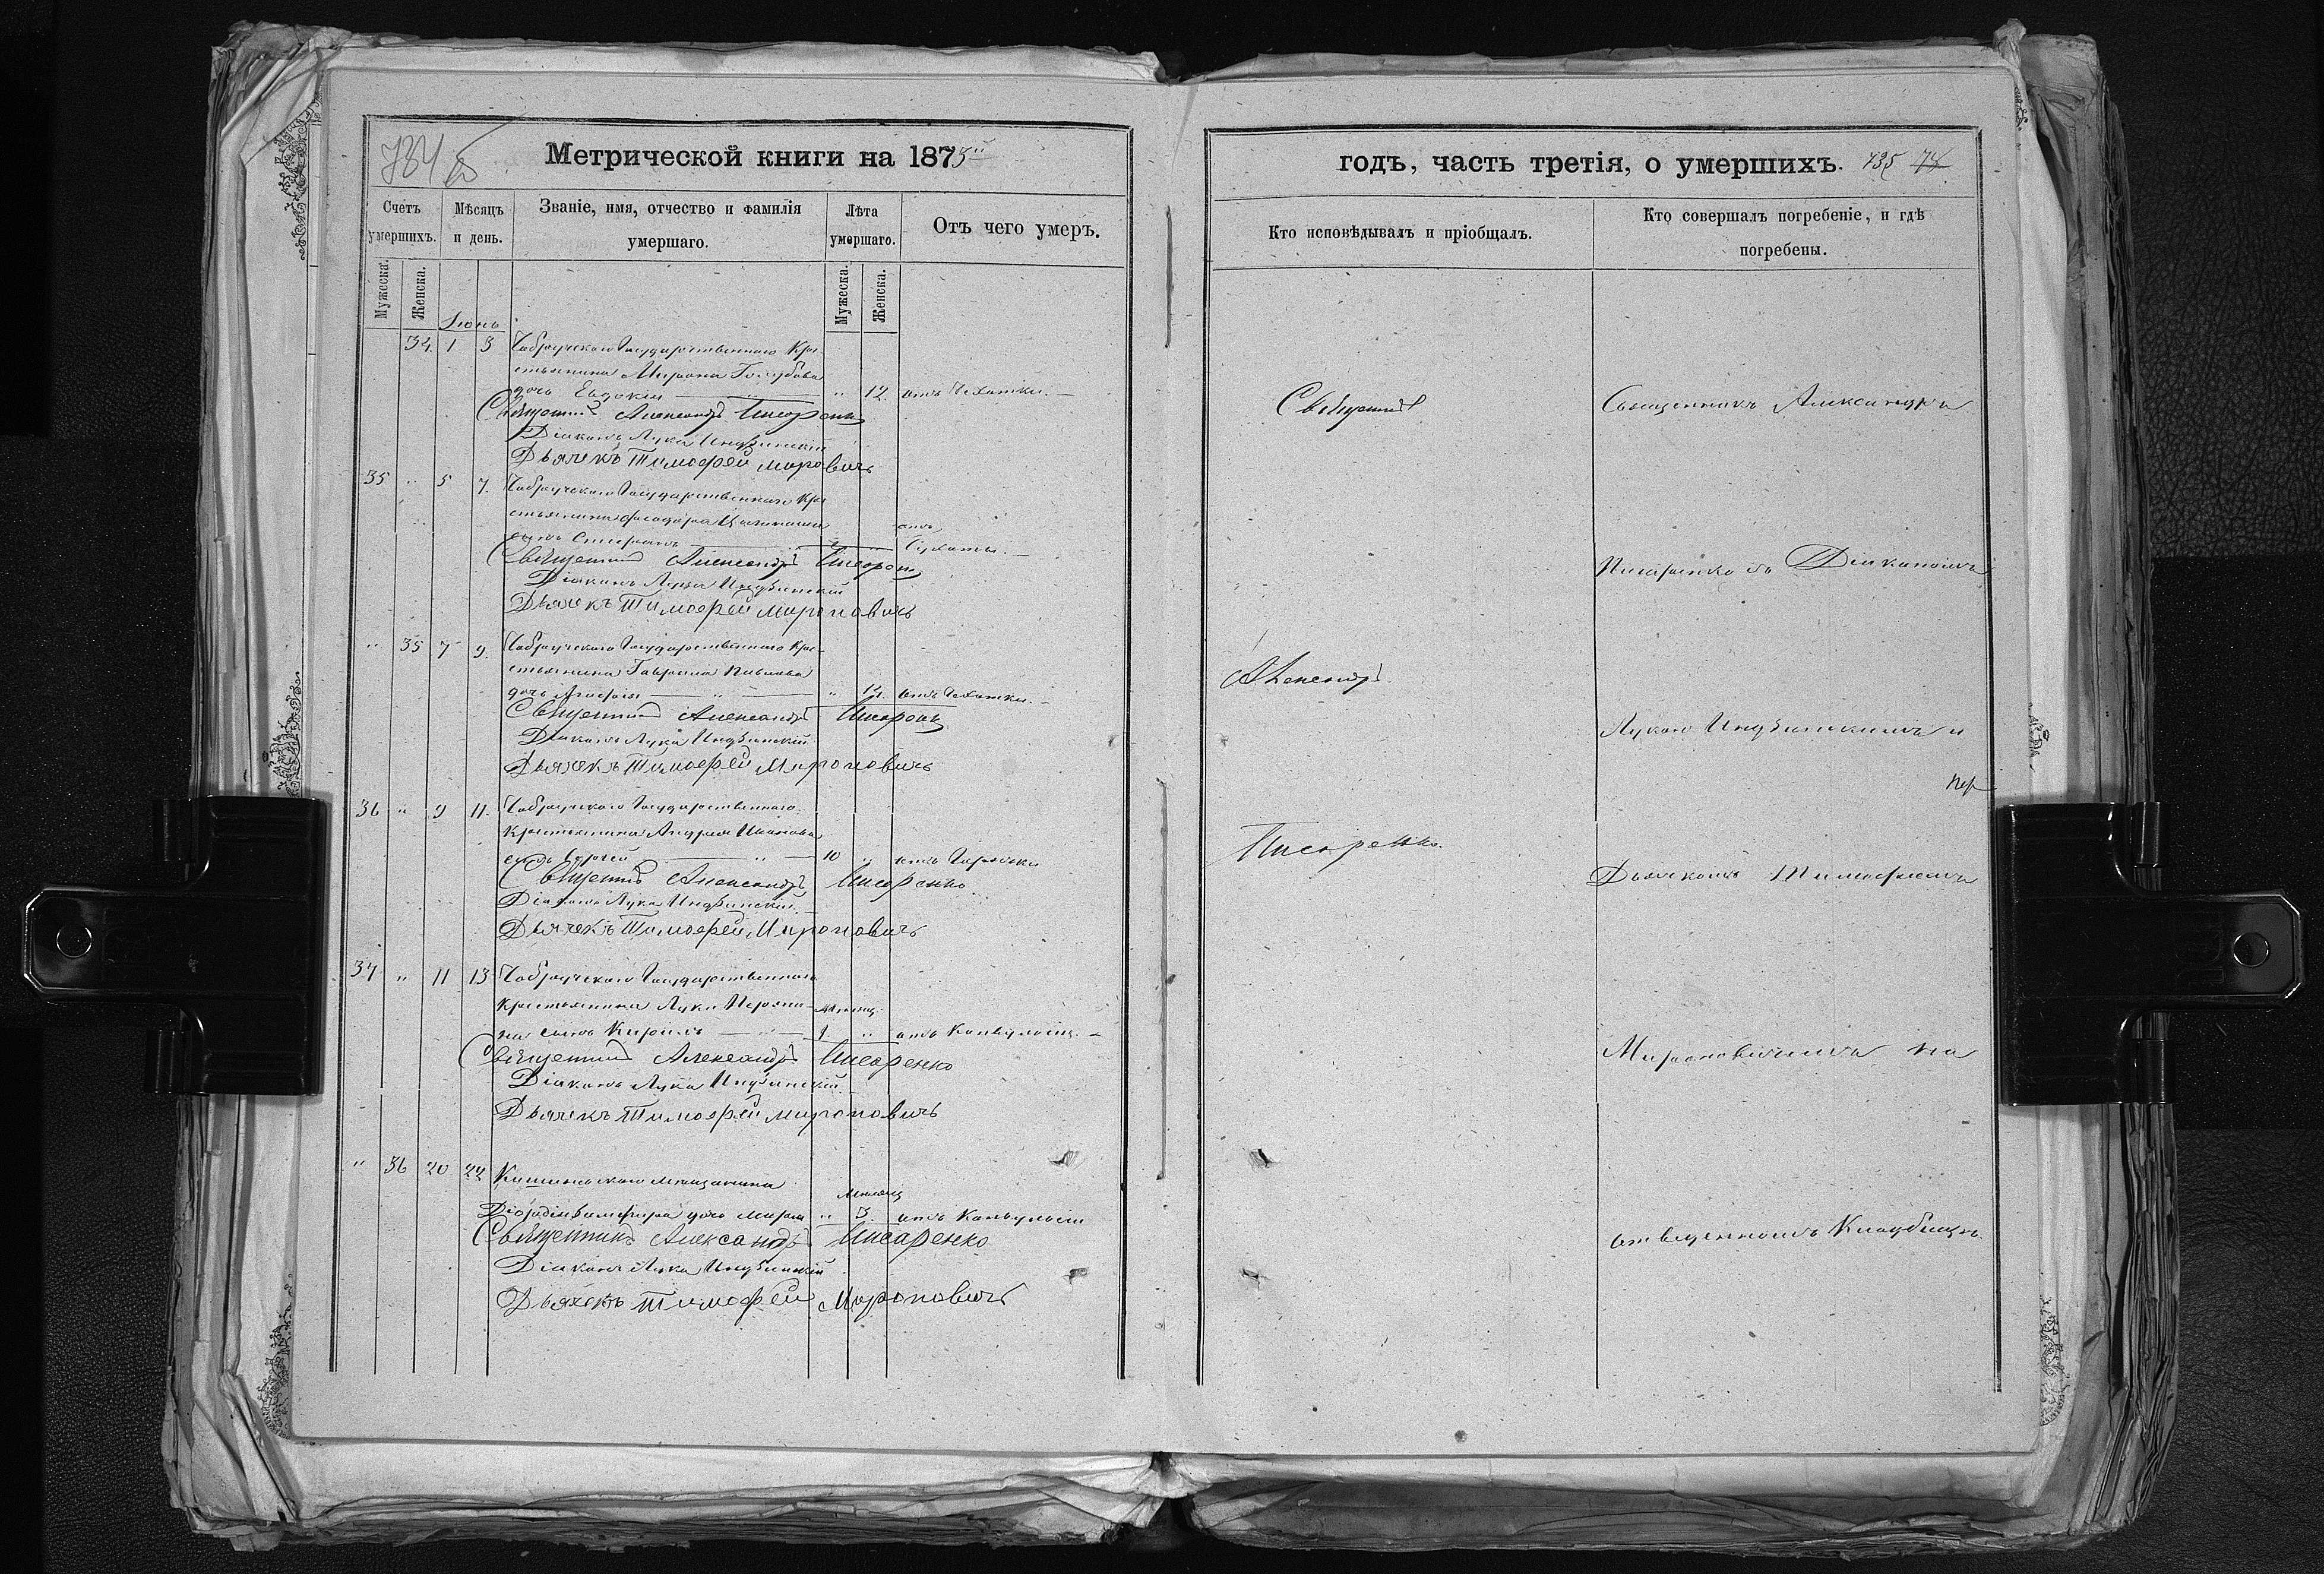 734
Метрической книги на 1875
Счетъ умершихъ.
Мѣсяцъ и день.
Званіе, имя, отчество и фамилія умершаго.
Лѣта умершаго.
Отъ чего умеръ.
Мужеска.
Женска.
Мужеска.
Женска.
Іюнь
34. 1 3 Чобручскаго Государственнаго Кре-
стьянина Мирона Голубова
дочь Евдокія „ 12. отъ Чехотки.
Священникъ Александръ Писаренко
Діаконъ Лука Индзинскій
Дьячекъ Тимофей Мировичъ
35 „ 5 7. Чобручскаго Государственнаго Кре
стьянина Феодора
сынъ Стефанъ отъ
Священникъ Александръ Писаренко
Діаконъ Лука Индзинскій
Дьячекъ Тимофей Мироновичъ
„ 35 7 9. Чобручскаго Государственнаго Кре-
стьянина Гавріила Павлова
дочь „ 12. отъ Чехотки.
Священникъ Александръ Писаренко
Діаконъ Лука Индзинскій
Дьячекъ Тимофей Мироновичъ
36 „ 9 11. Чобручскаго Государственнаго
Крестьянина Андрея Иванова
сынъ Сергей „ 10 „ отъ Горячки
Священникъ Александръ Писаренко
Діаконъ Лука Индзинскій
Дьячекъ Тимофей Мироновичъ
37 „ 11 13 Чобручскаго Государственнаго
Крестьянина Луки
на сынъ Кирилъ „ 1 „ отъ Конвульсіи.
Священникъ Александръ Писаренко
Діаконъ Лука Индзинскій
Дьячекъ Тимофей Мироновичъ
„ 36 20 22 Кишиневскаго мещанина
Месяц
дочь Марія „ 3. отъ Конвульсіи
Священникъ Александръ Писаренко
Діаконъ Лука Индзинскій
Дьячекъ Тимофей Мироновичъ
годъ, часть третія, о умершихъ. 735 74
Кто исповѣдывалъ и пріобщалъ.
Кто совершалъ погребеніе, и гдѣ погребены.
Священникъ
Александръ
Писаренко.
Священникъ Александръ
Писаренко съ Діакономъ
Лукою Индзинскимъ и
Дьячкомъ Тимофеемъ
Мироновичемъ на
отведенномъ Кладбищѣ.